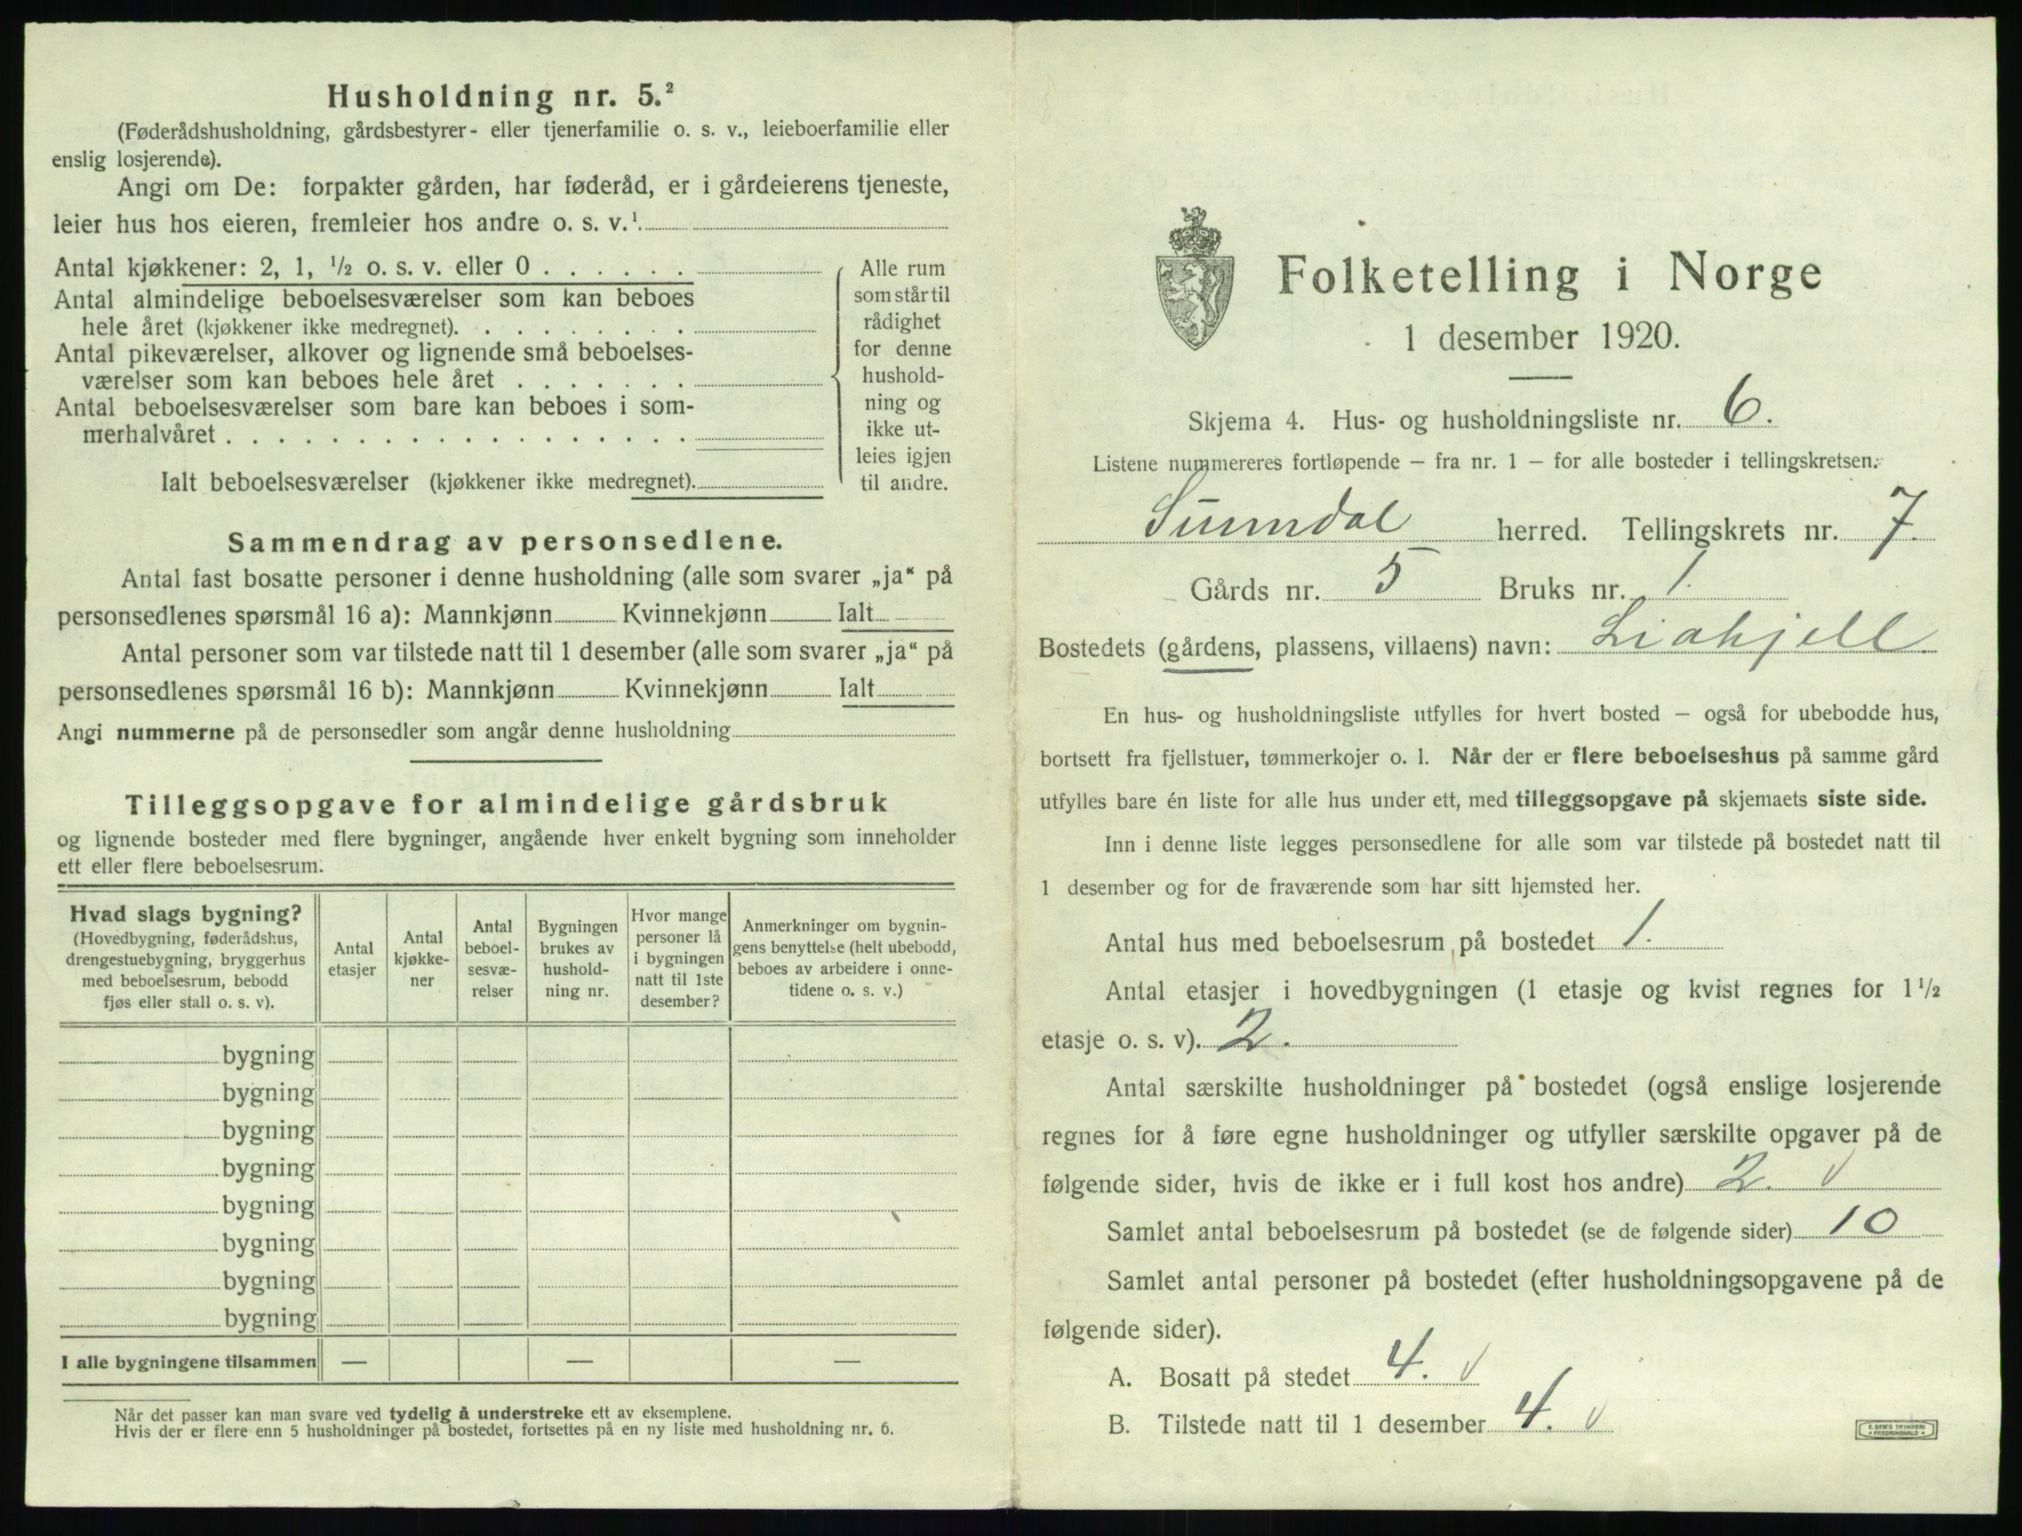 Husholdning nr. 5.²
(Føderådshusholdning, gårdsbestyrer- eller tjenerfamilie o. s. v., leieboerfamilie eller
enslig losjerende).
Angi om De: forpakter gården, har føderåd, er i gårdeierens tjeneste,
leier hus hos eieren, fremleier hos andre o. s. v.¹
Antal kjøkkener: 2, 1, ½ o. s. v. eller 0 . . . . . .
Antal almindelige beboelsesværelser som kan beboes
hele året (kjøkkener ikke medregnet). . . . . . . . .
Antal pikeværelser, alkover og lignende små beboelses-
værelser som kan beboes hele året . . . . . . .
Antal beboelsesværelser som bare kan beboes i som-
merhalvåret . . . . . . . . . . . . . . . . .
Ialt beboelsesværelser (kjøkkener ikke medregnet).
Alle rum
som står til
rådighet
for denne
hushold-
ning og
ikke ut-
leies igjen
til andre.
Sammendrag av personsedlene.
Antal fast bosatte personer i denne husholdning (alle som svarer „ja“ på
personsedlenes spørsmål 16 a): Mannkjønn Kvinnekjønn Ialt
Antal personer som var tilstede natt til 1 desember (alle som svarer „ja“ på
personsedlenes spørsmål 16 b): Mannkjønn Kvinnekjønn Ialt
Angi nummerne på de personsedler som angår denne husholdning
Tilleggsopgave for almindelige gårdsbruk
og lignende bosteder med flere bygninger, angående hver enkelt bygning som inneholder
ett eller flere beboelsesrum.
Hvad slags bygning?
(Hovedbygning, føderådshus,
drengestuebygning, bryggerhus
med beboelsesrum, bebodd
fjøs eller stall o. s. v).
Antal
etasjer
Antal
kjøkke-
ner
Antal
beboel-
sesvæ-
relser
Bygningen
brukes av
hushold-
ning nr.
Hvor mange
personer lå
i bygningen
natt til 1ste
desember?
Anmerkninger om bygnin-
gens benyttelse (helt ubebodd,
beboes av arbeidere i onne-
tidene o. s. v.)
bygning
bygning
bygning
bygning
bygning
bygning
bygning
bygning
I alle bygningene tilsammen — — —
Når det passer kan man svare ved tydelig å understreke ett av eksemplene.
Hvis der er flere enn 5 husholdninger på bostedet, fortsettes på en ny liste med husholdning nr. 6.
Folketelling i Norge
1 desember 1920.
Skjema 4. Hus- og husholdningsliste nr. 6.
Listene nummereres fortløpende – fra nr. 1 – for alle bosteder i tellingskretsen.
Sunndal herred. Tellingskrets nr. 7.
Gårds nr. 5 Bruks nr. 1.
Bostedets (gårdens, plassens, villaens) navn: Liahjell
En hus- og husholdningsliste utfylles for hvert bosted – også for ubebodde hus,
bortsett fra fjellstuer, tømmerkojer o. l. Når der er flere beboelseshus på samme gård
utfylles bare én liste for alle hus under ett, med tilleggsopgave på skjemaets siste side.
Inn i denne liste legges personsedlene for alle som var tilstede på bostedet natt til
1 desember og for de fraværende som har sitt hjemsted her.
Antal hus med beboelsesrum på bostedet 1.
Antal etasjer i hovedbygningen (1 etasje og kvist regnes for 1½
etasje o. s. v). 2.
Antal særskilte husholdninger på bostedet (også enslige losjerende
regnes for å føre egne husholdninger og utfyller særskilte opgaver på de
følgende sider, hvis de ikke er i full kost hos andre) 2. v
Samlet antal beboelsesrum på bostedet (se de følgende sider) 10
Samlet antal personer på bostedet (efter husholdningsopgavene på de
følgende sider).
A. Bosatt på stedet 4. v
B. Tilstede natt til 1 desember 4. v